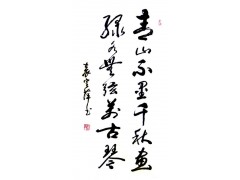 青山不墨千秋画
绿水無弦万古琴